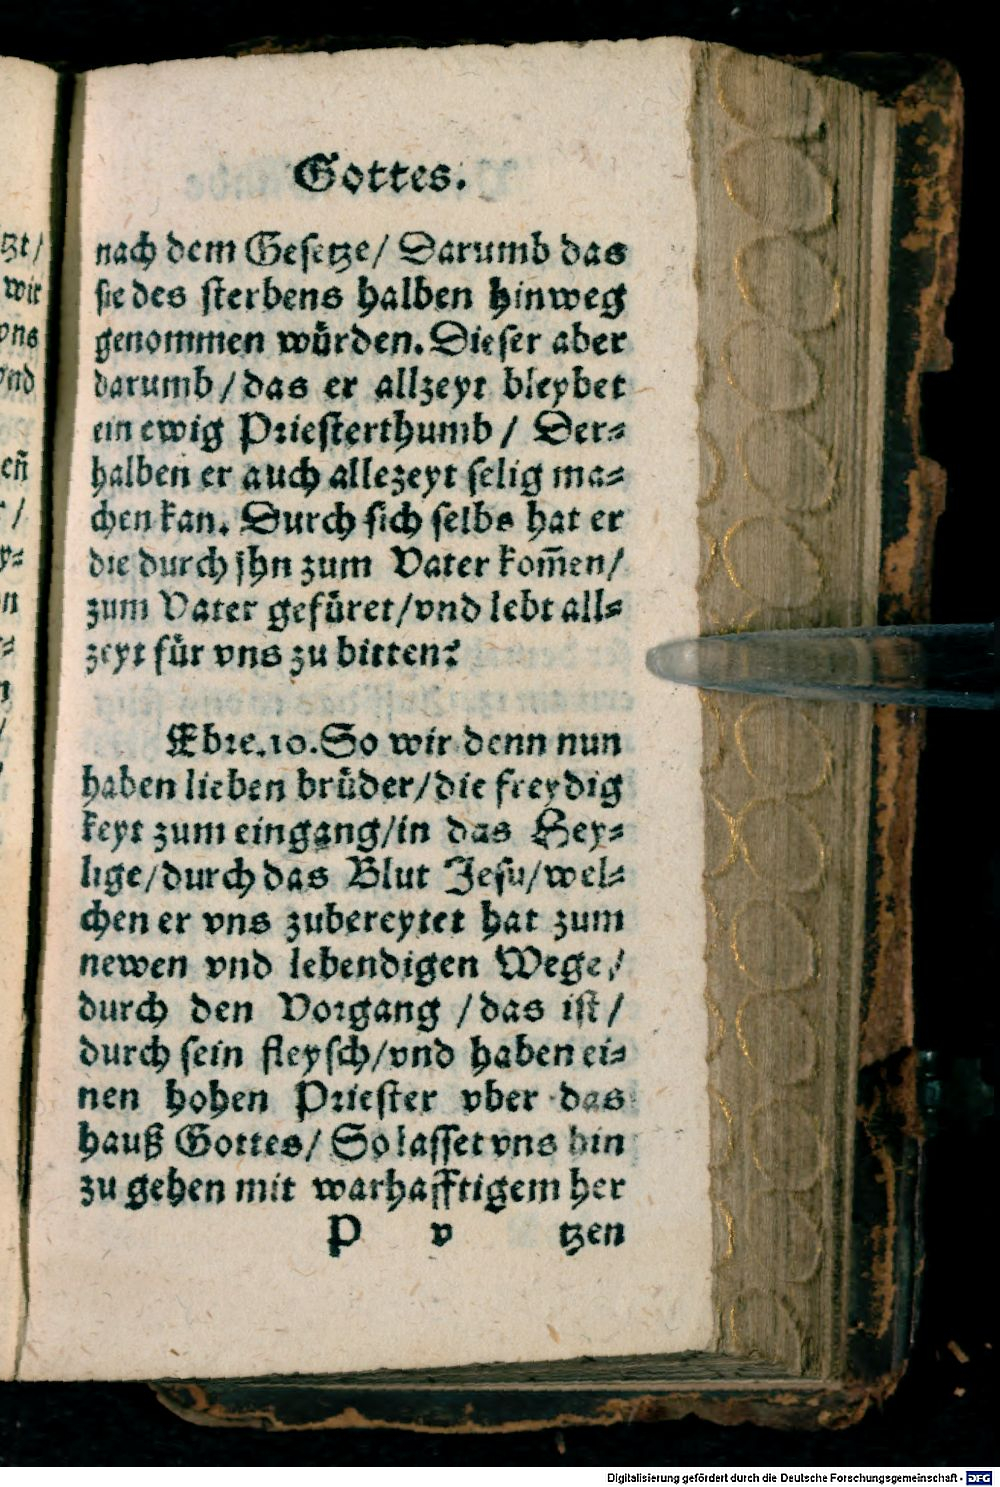 Gottes.
nach dem Gesetze/ Darumb das
sie des sterbens halben hinweg
genommen würden. Dieser aber
darumb/das er allzeyt bleybet
ein ewig Priesterthumb/ Der-
halben er auch allezeyt selig ma-
chen kan. Durch sich selbs hat er
die durch jhn zum Vater kom̃en/
zum Vater gefüret/vnd lebt all-
zeyt für vns zu bitten?
Ebre.10.So wir denn nun
haben lieben brüder/die freydig
keyt zum eingang/in das Hey-
lige/durch das Blut Jesu/wel-
chen er vns zubereytet hat zum
newen vnd lebendigen Wege/
durch den Vorgang /das ist/
durch sein fleysch/vnd haben ei-
nen hohen Priester vber das
hauß Gottes/ So lasset vns hin
zu gehen mit warhafftigem her
P v tzen
tzt/
wir
vns
vnd
eñ
Digitalisierung gefördert durch die Deutsche Forschungsgemeinschaft - DFG